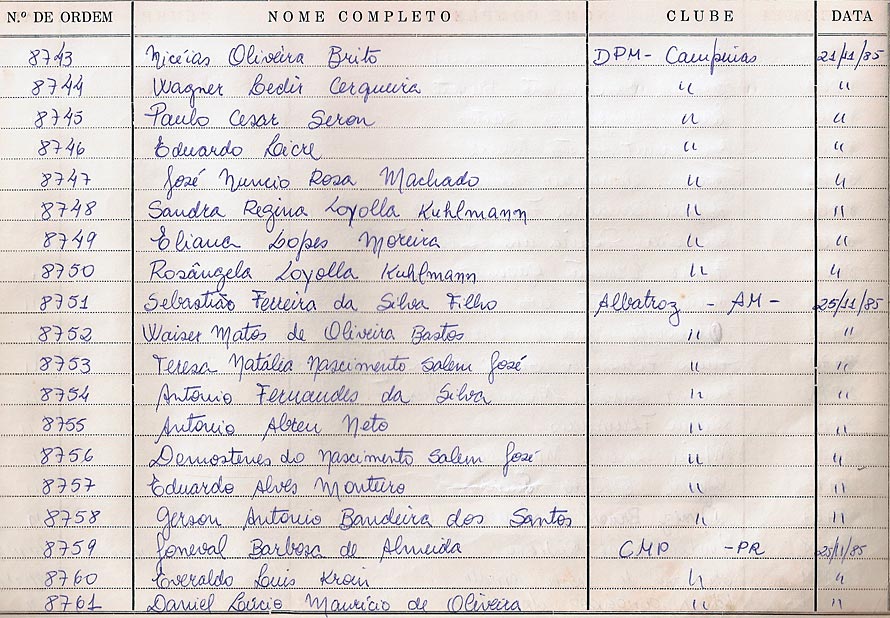 N.º DE ORDEM NOME COMPLETO CLUBE DATA
8743 Nicéias Oliveira Brito DPM - Campinas 21/11/85
8744 Wagner Cerqueira " "
8745 Paulo Cesar Seron " "
8746 Eduardo " "
8747 José Nuncio Rosa Machado " "
8748 Sandra Regina Loyolla Kuhlmann " "
8749 Eliana Lopes Moreira " "
8750 Rosângela Loyolla Kuhlmann " "
8751 Sebastião Ferreira da Silva Filho Albatroz - AM - 25/11/85
8752 Waiser Matos de Oliveira Bastos " "
8753 Teresa Natália Nascimento Salem José " "
8754 Antonio Fernandes da Silva " "
8755 Antonio Abreu Neto " "
8756 Demostenes do Nascimento Salem José " "
8757 Eduardo Alves Monturo " "
8758 Gerson Antonio Bandeira dos Santos " "
8759 Joneval Barbosa de Almeida CMP - PR 25/11/85
8760 Everaldo Luis " "
8761 Daniel Lúcio Maurício de Oliveira " "